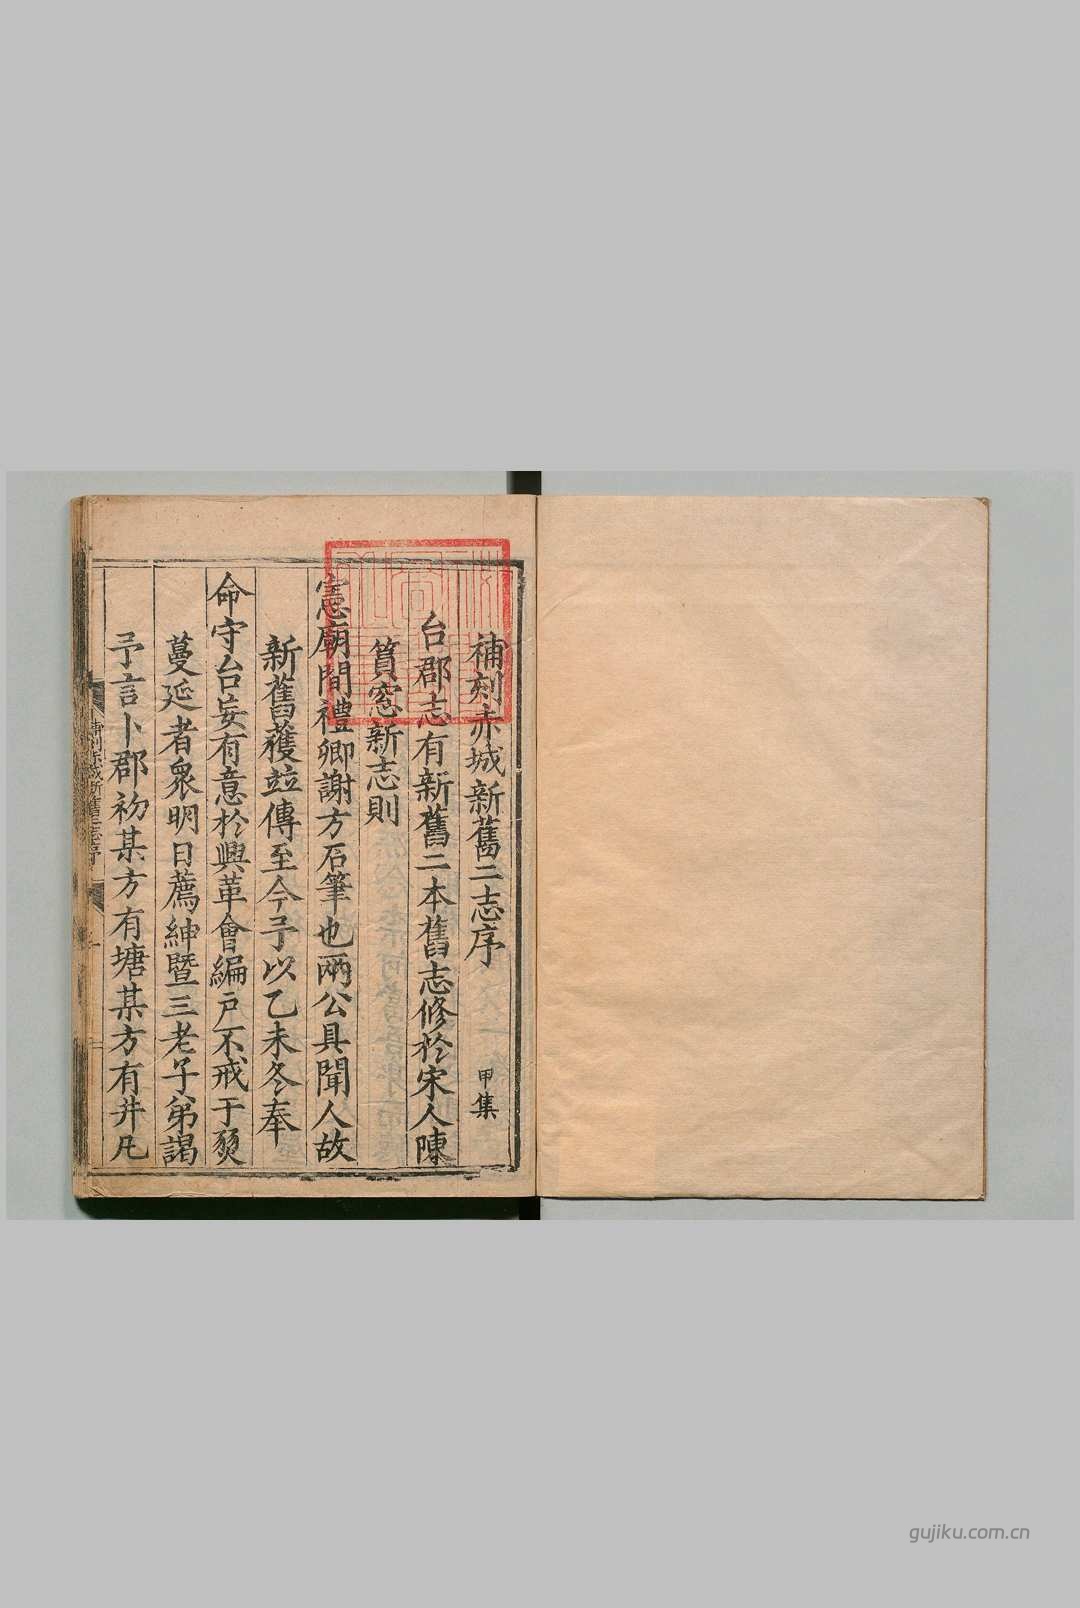 補刻赤城新舊二志序 甲集
台郡志有新舊二本舊志修於宋人陳
篔窓新志則
憲廟間禮卿謝方石筆也兩公具聞人故
新舊蒦竝傳至今予以乙未冬奉
命守台妄有意於興革會編戸不戒于燹
蔓延者衆明日薦紳暨三老子弟謁
予言卜郡初某方有塘某方有井凡
補刻赤城新舊二志序
gujiku.com.cn